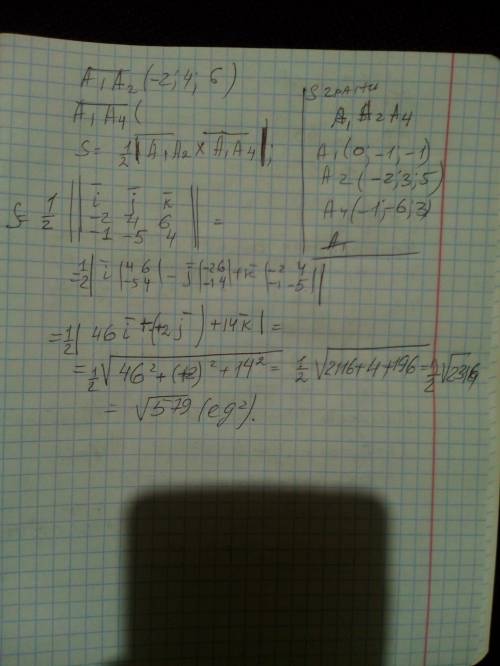 A₁A₂ (-2; 4; 6)
A₁A₄ (
S = 1/2 | A₁A₂ × A₁A₄ |;
S грани
A₁ A₂ A₄
A₁ (0; -1; -1)
A₂ (-2; 3; 5)
A₄ (-1; -6; 3)
A₁
S = 1/2 || i j k
-2 4 6
-1 -5 4 || =
= 1/2 | i |4 6 -5 4| - j |-2 6 -1 4| + k |-2 4 -1 -5| |
= 1/2 | 46 i + (+2 j) + 14 k | =
= 1/2 √46² + (+2)² + 14² = 1/2 √2116 + 4 + 196 = 1/2 √2316
= √579 (eg²).